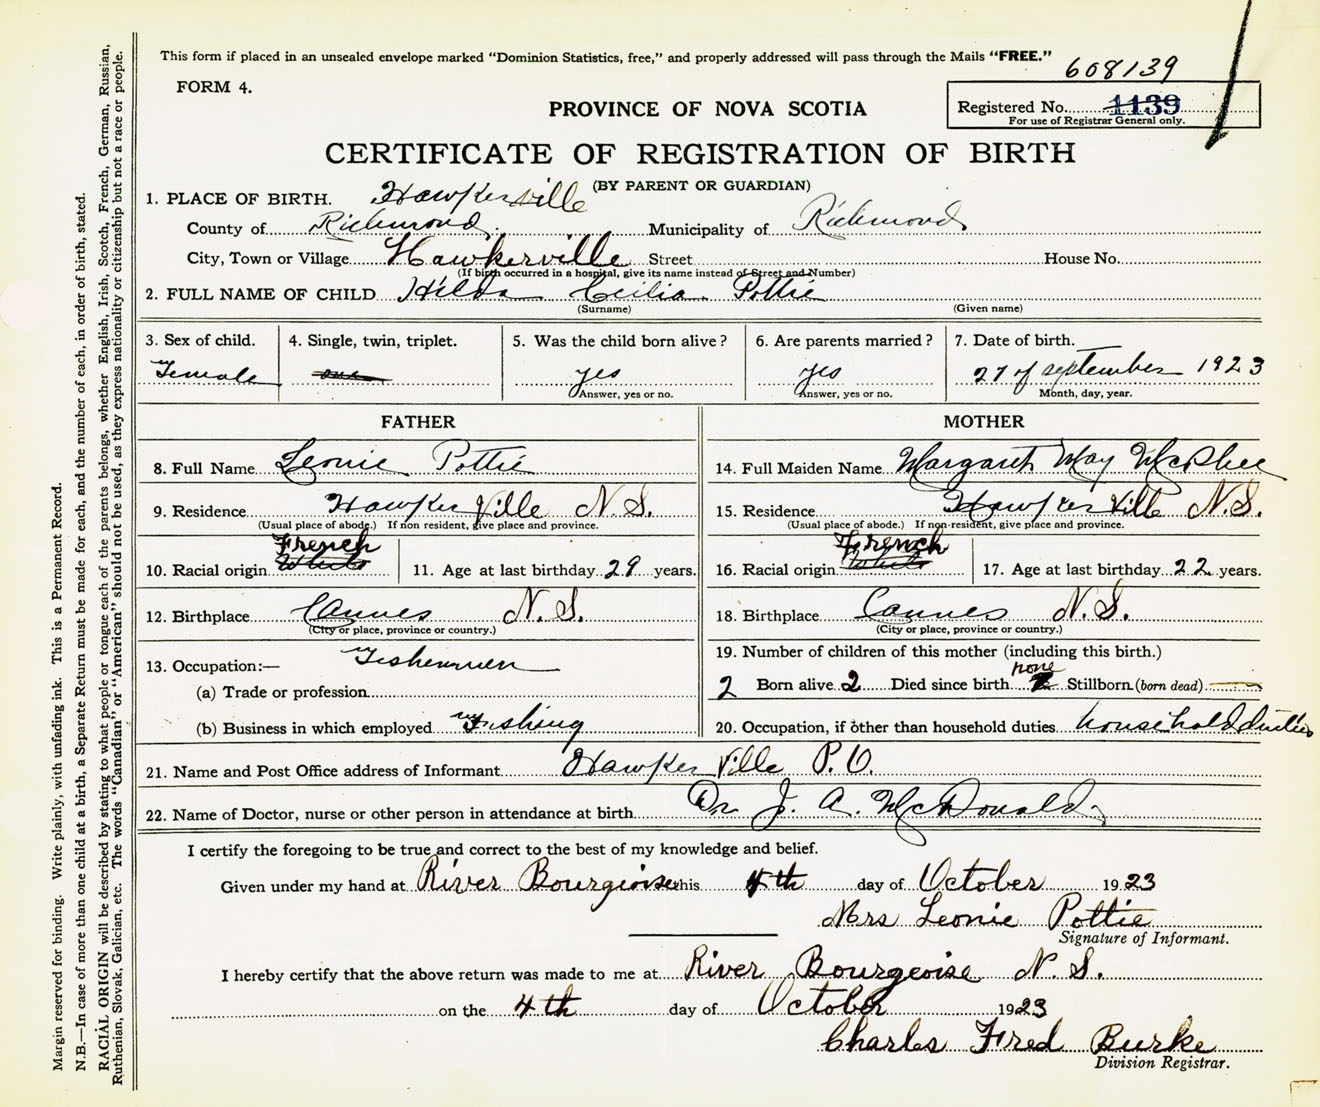 This form if placed in an unsealed envelope marked "Dominion Statistics, free," and properly addressed will pass through the Mails "FREE."
608139
FORM 4.
PROVINCE OF NOVA SCOTIA
Registered No. 1139
For use of Registrar General only.
CERTIFICATE OF REGISTRATION OF BIRTH
(BY PARENT OR GUARDIAN)
1. PLACE OF BIRTH. Hawkerville
County of Richmond Municipality of Richmond
City, Town or Village Hawkerville Street House No.
(If birth occurred in a hospital, give its name instead of Street and Number)
2. FULL NAME OF CHILD Hilda Cecilia Pottie
(Surname) (Given name)
3. Sex of child. 4. Single, twin, triplet. 5. Was the child born alive? 6. Are parents married? 7. Date of birth.
Female one yes yes 27 of september 1923
Answer, yes or no. Answer, yes or no. Month, day, year.
FATHER MOTHER
8. Full Name Leonie Pottie 14. Full Maiden Name Margaret May McPhee
9. Residence Hawker Ville N.S. 15. Residence Hawker Ville N.S.
(Usual place of abode.) If non resident, give place and province. (Usual place of abode.) If non-resident, give place and province.
French French
10. Racial origin White 11. Age at last birthday 29 years. 16. Racial origin White 17. Age at last birthday 22 years.
12. Birthplace Cannes N.S. 18. Birthplace Cannes N.S.
(City or place, province or country.) (City or place, province or country.)
13. Occupation:— Fishermen 19. Number of children of this mother (including this birth.)
none
(a) Trade or profession 2 Born alive 2 Died since birth Stillborn (born dead)
(b) Business in which employed Fishing 20. Occupation, if other than household duties household duties
21. Name and Post Office address of Informant Hawker Ville P.O.
22. Name of Doctor, nurse or other person in attendance at birth Dr J. A. McDonald
I certify the foregoing to be true and correct to the best of my knowledge and belief.
Given under my hand at River Bourgeoise this 4th day of October 1923
Mrs Leonie Pottie
Signature of Informant.
I hereby certify that the above return was made to me at River Bourgeoise N.S.
on the 4th day of October 1923
Charles Fred Burke
Division Registrar.
Margin reserved for binding. Write plainly, with unfading ink. This is a Permanent Record.
N.B.—In case of more than one child at a birth, a Separate Return must be made for each, and the number of each, in order of birth, stated.
RACIAL ORIGIN will be described by stating to what people or tongue each of the parents belongs, whether English, Irish, Scotch, French, German, Russian,
Ruthenian, Slovak, Galician, etc. The words "Canadian" or "American" should not be used, as they express nationality or citizenship but not a race or people.